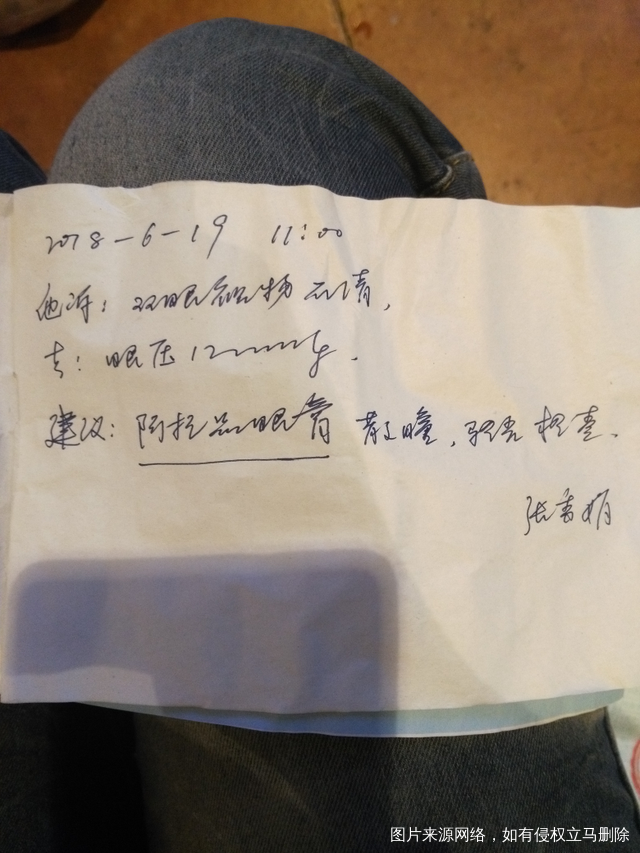 2018-6-19 11:00
他诉：双眼视物不清，
去：眼压12mmHg.
建议：阿托品眼膏 散瞳，验光检查.
张香娟
图片来源网络，如有侵权立马删除